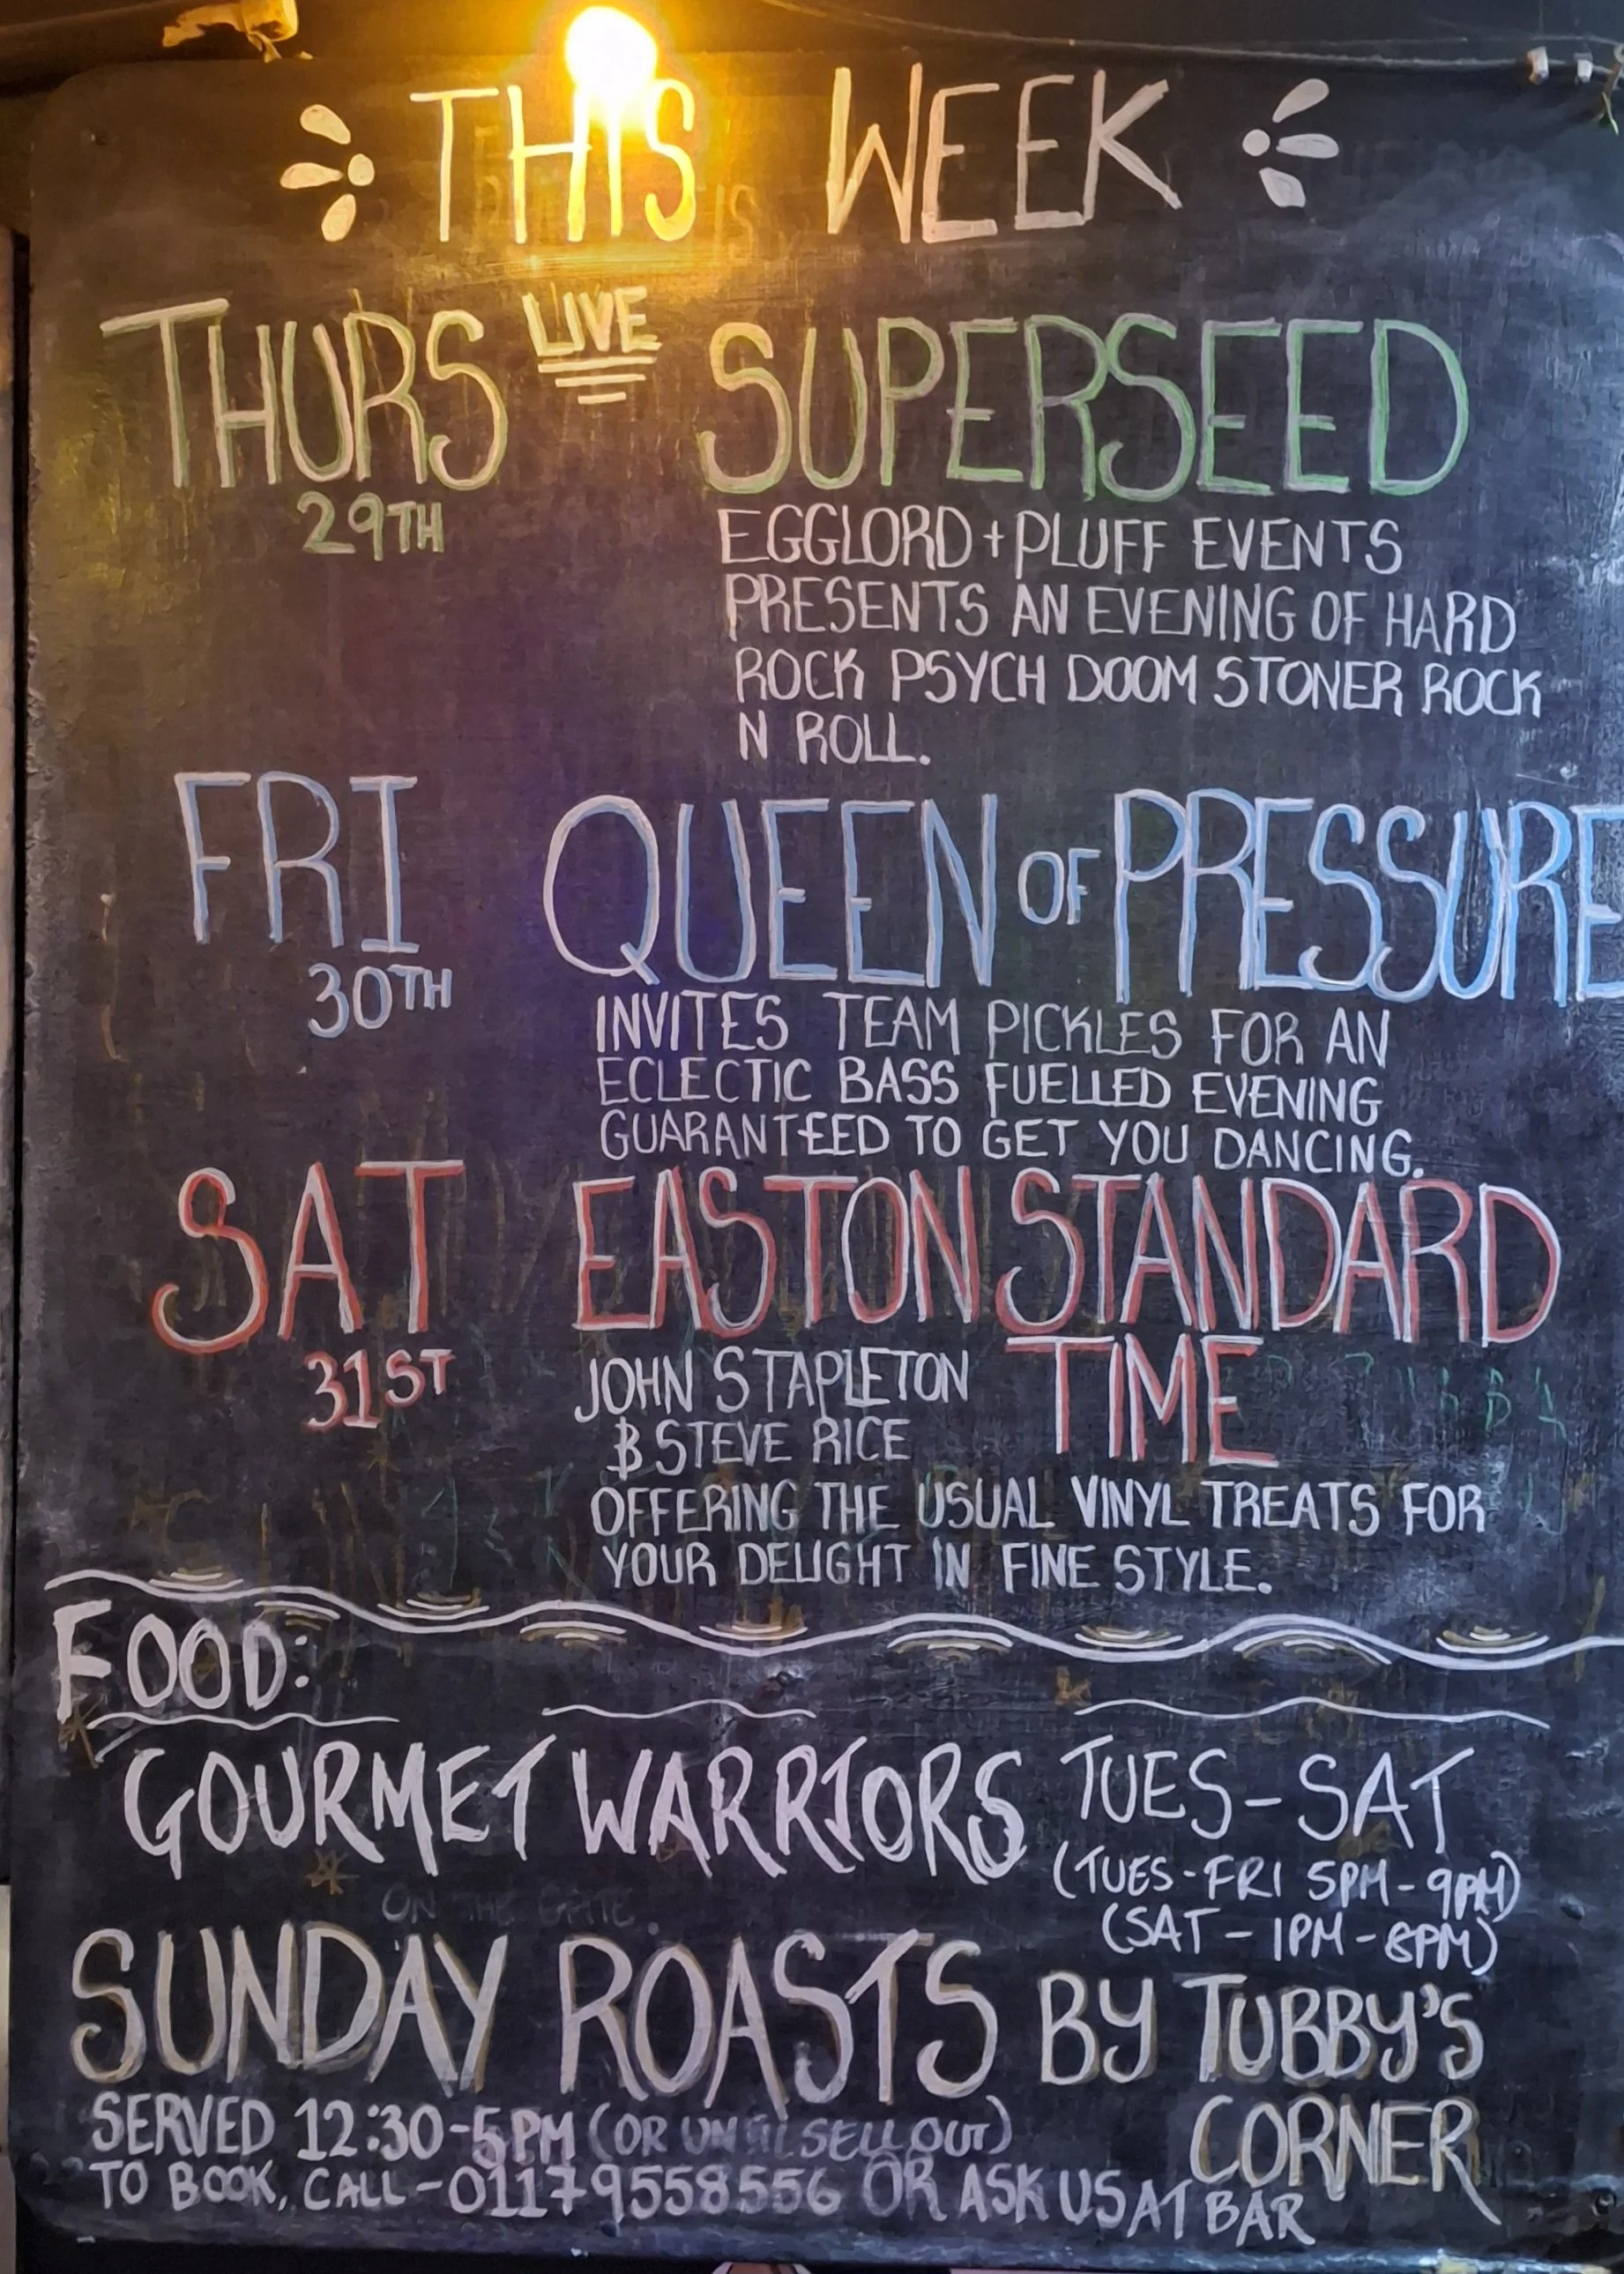 THIS WEEK
THURS LIVE SUPERSEED
29TH
EGGLORD + PLUFF EVENTS
PRESENTS AN EVENING OF HARD
ROCK PSYCH DOOM STONER ROCK
N ROLL.
FRI QUEEN OF PRESSURE
30TH
INVITES TEAM PICKLES FOR AN
ECLECTIC BASS FUELLED EVENING
GUARANTEED TO GET YOU DANCING.
SAT EASTON STANDARD
TIME
31ST
JOHN STAPLETON
& STEVE RICE
OFFERING THE USUAL VINYL TREATS FOR
YOUR DELIGHT IN FINE STYLE.
FOOD:
GOURMET WARRIORS TUES - SAT
(TUES - FRI 5PM - 9PM)
(SAT - 1PM - 8PM)
ON THE
SUNDAY ROASTS BY TUBBY'S
CORNER
SERVED 12:30-5PM (OR UNTIL SELL OUT)
TO BOOK, CALL - 01179558556 OR ASK US AT BAR